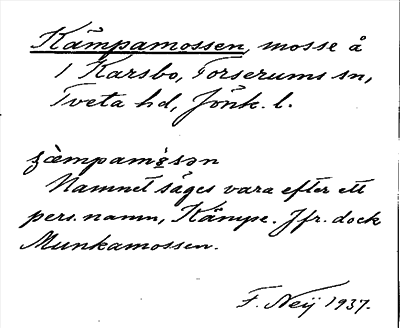 Kämpamossen, mosse å
1 Karsbo, Torserums sn,
Tveta hd, Jönk. l.
Namnet säges vara efter ett
pers.namn, Kämpe. Jfr. dock
Munkamossen.
F. Neij 1937.